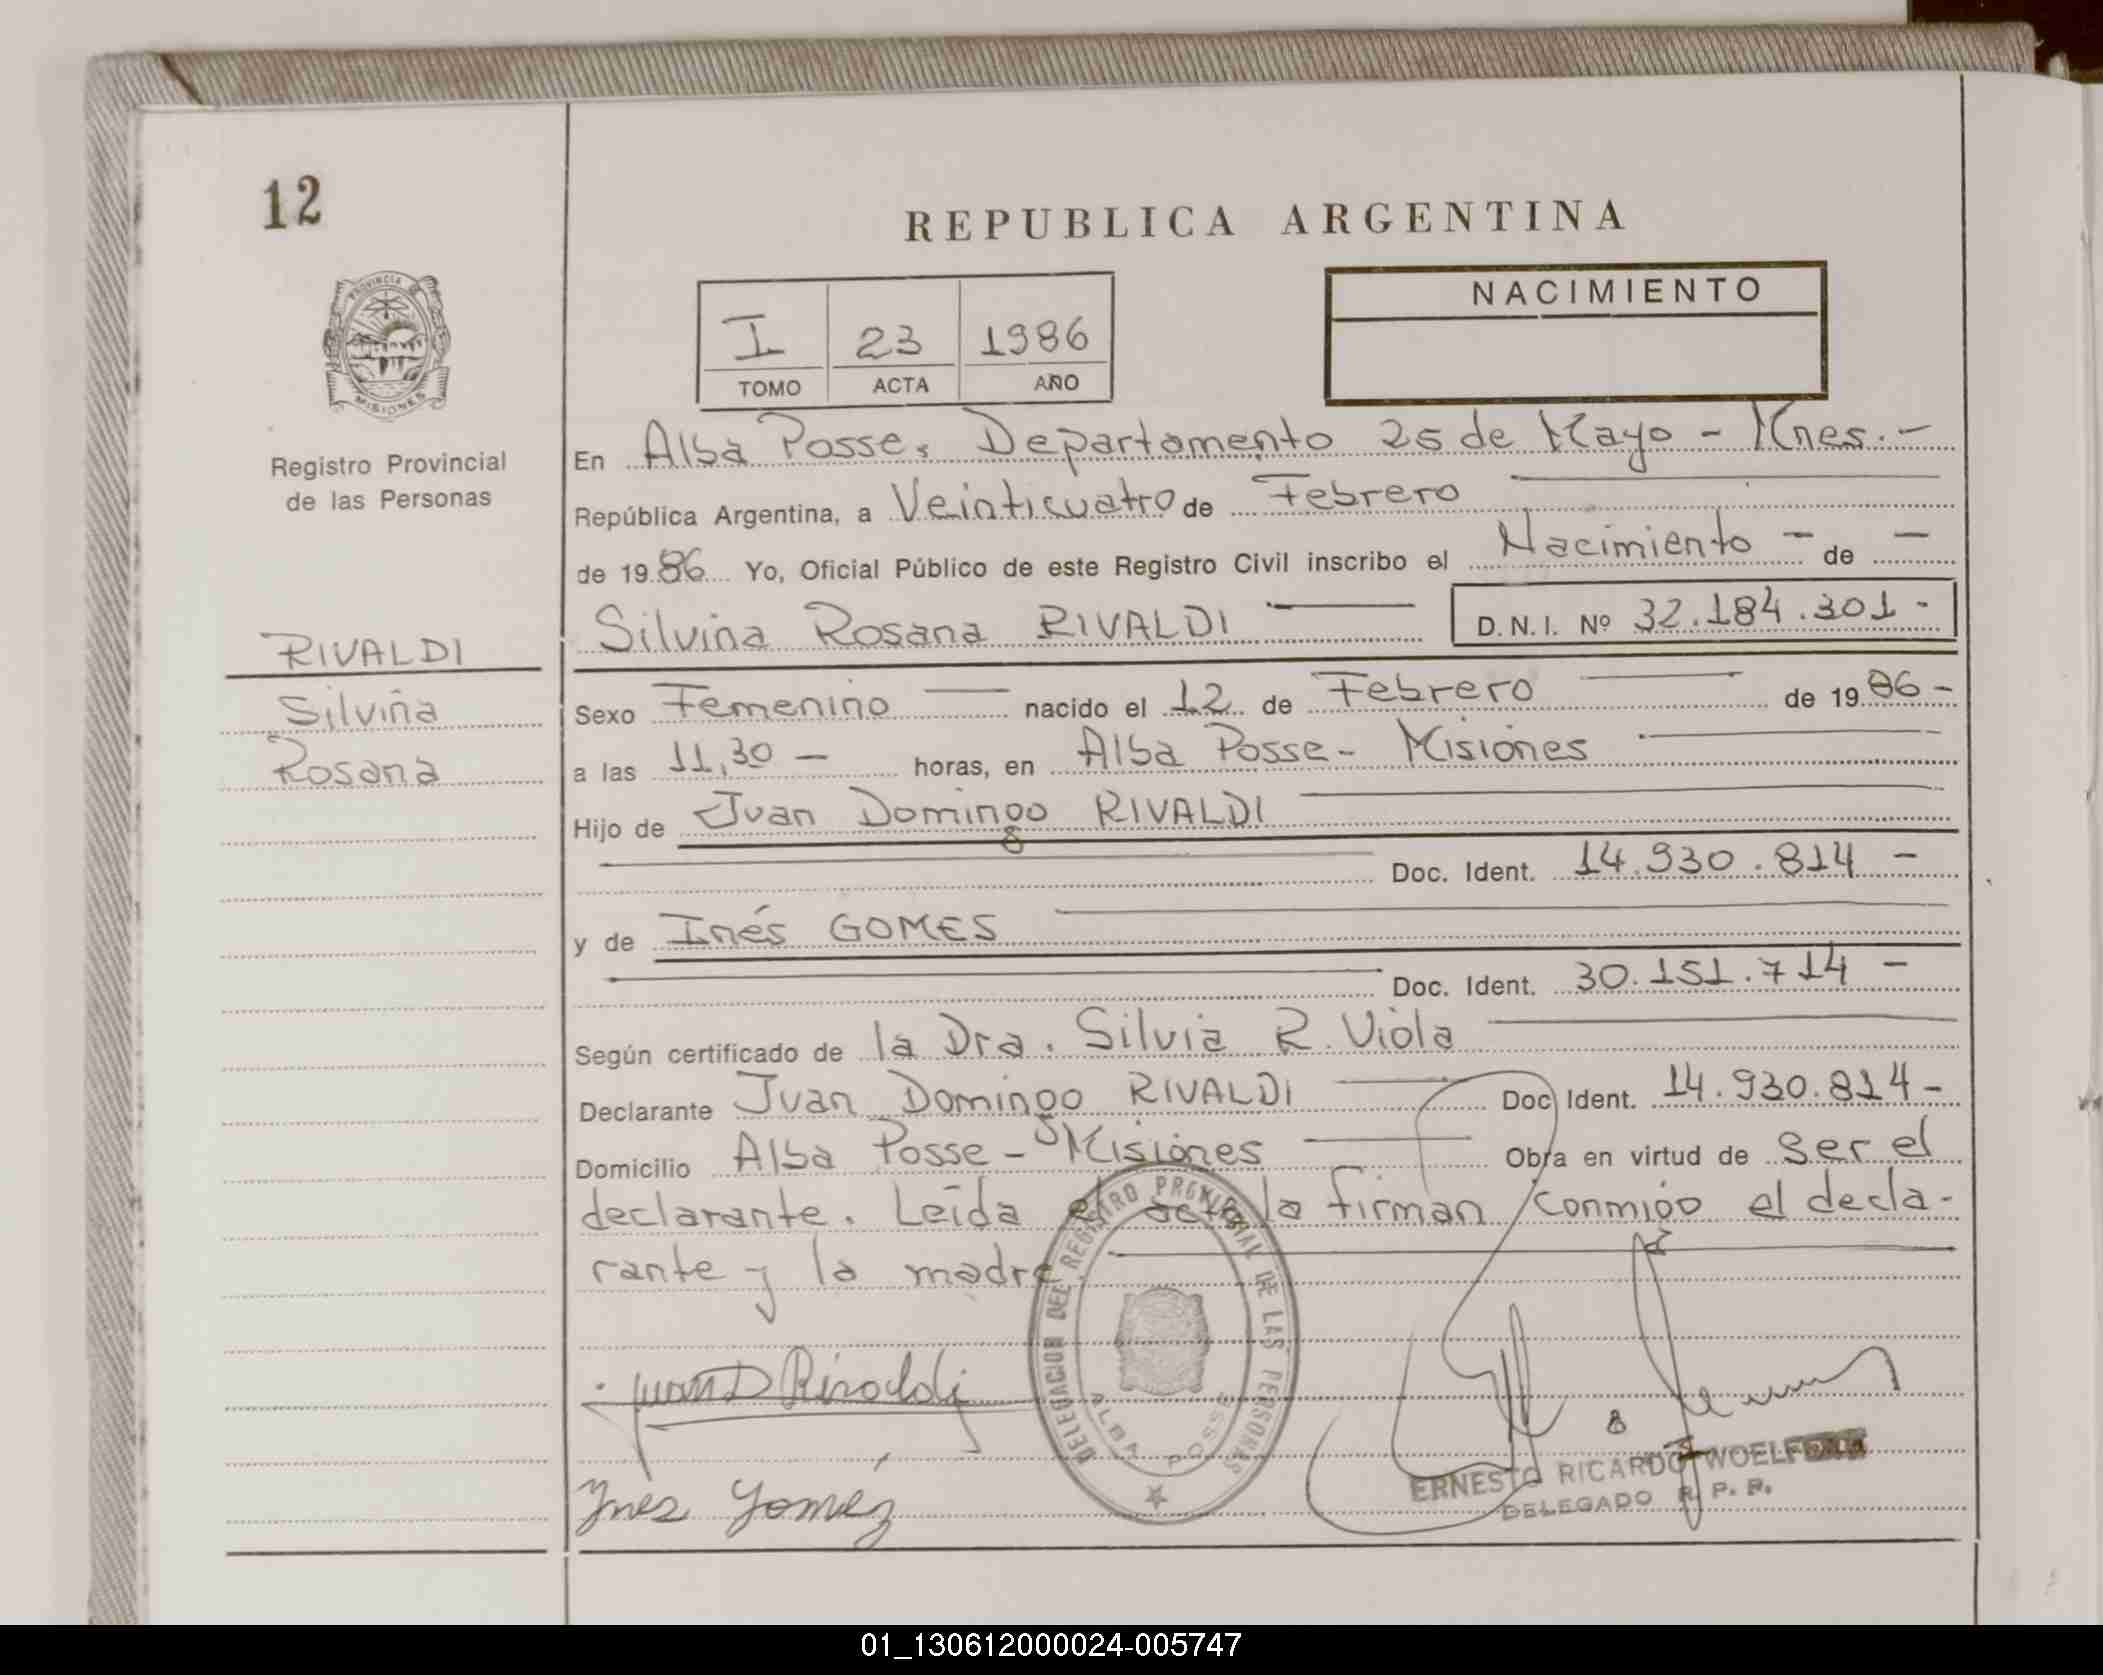 12
REPUBLICA ARGENTINA
PROVINCIA DE
MISIONES
Registro Provincial
de las Personas
I 23 1986
TOMO ACTA AÑO
NACIMIENTO
En Alba Posse, Departamento 25 de Mayo - Mnes. -
República Argentina, a Veinticuatro de Febrero
de 1986 Yo, Oficial Público de este Registro Civil inscribo el Nacimiento - de -
Silvina Rosana RIVALDI D.N.I. Nº 32.184.301 -
RIVALDI
Silvina
Rosana
Sexo Femenino nacido el 12 de Febrero de 1986 -
a las 11,30 - horas, en Alba Posse - Misiones
Hijo de Juan Domingo RIVALDI
Doc. Ident. 14.930.814 -
y de Inés GOMES
Doc. Ident. 30.151.714 -
Según certificado de la Dra. Silvia R. Viola
Declarante Juan Domingo RIVALDI Doc Ident. 14.930.814 -
Domicilio Alba Posse - Misiones Obra en virtud de Ser el
declarante. Leída el acta la firman conmigo el decla-
rante y la madre
Juan D Rivaldi
Ynes Gomez
DELEGACION DEL REGISTRO PROVINCIAL DE LAS PERSONAS
ALBA POSSE
ERNESTO RICARDO WOELF
DELEGADO R. P. P.
01_130612000024-005747